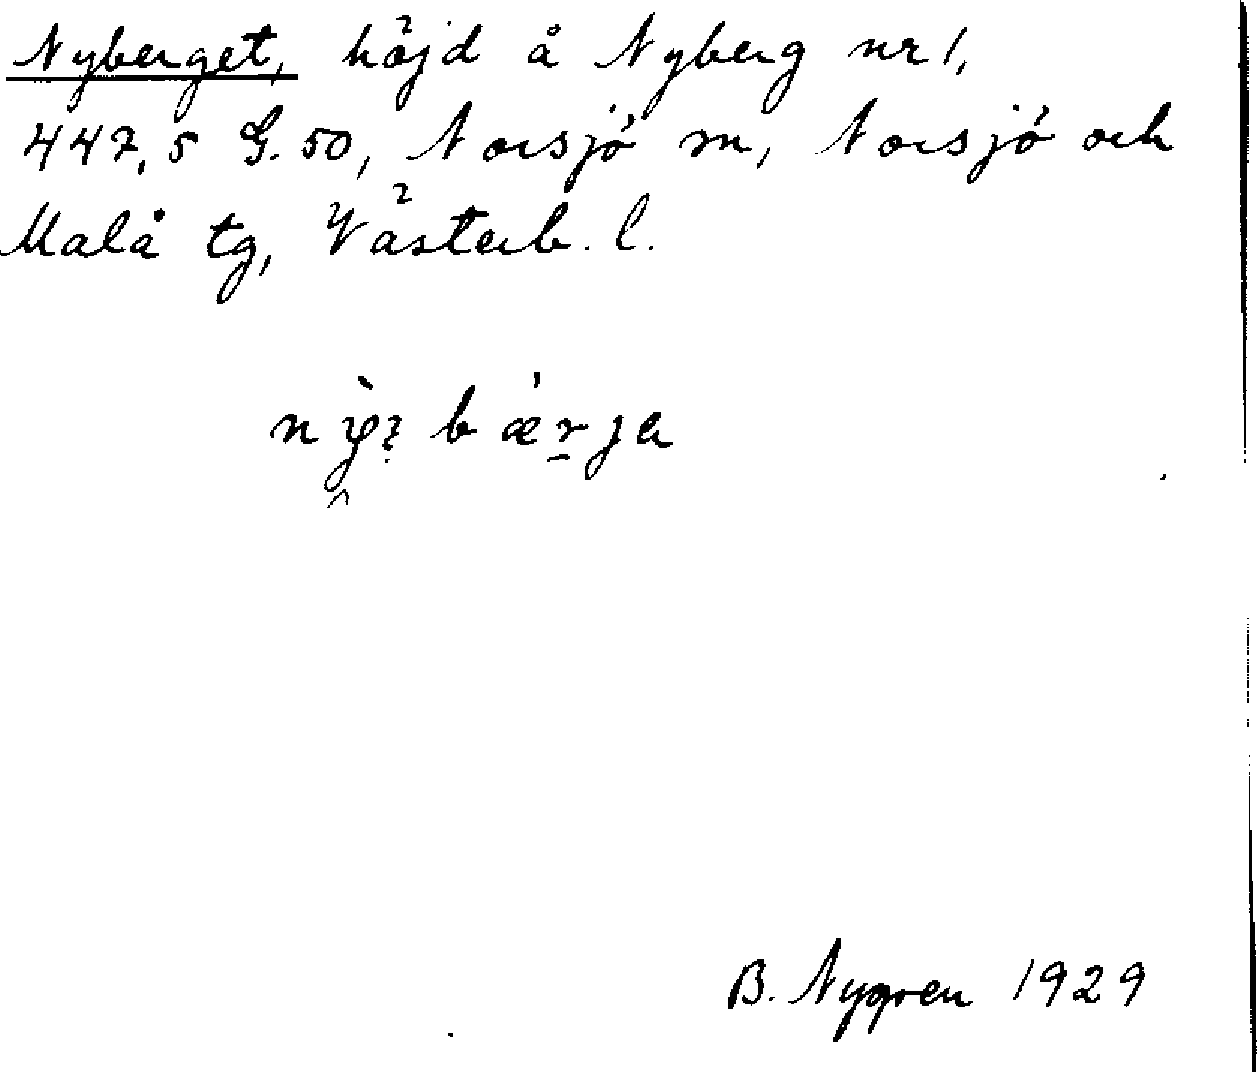 Nyberget, höjd å Nyberg nr 1,
447,5 G. 50, Norsjö sn, Norsjö och
Malå tg, Västerb. l.
B. Nygren 1929